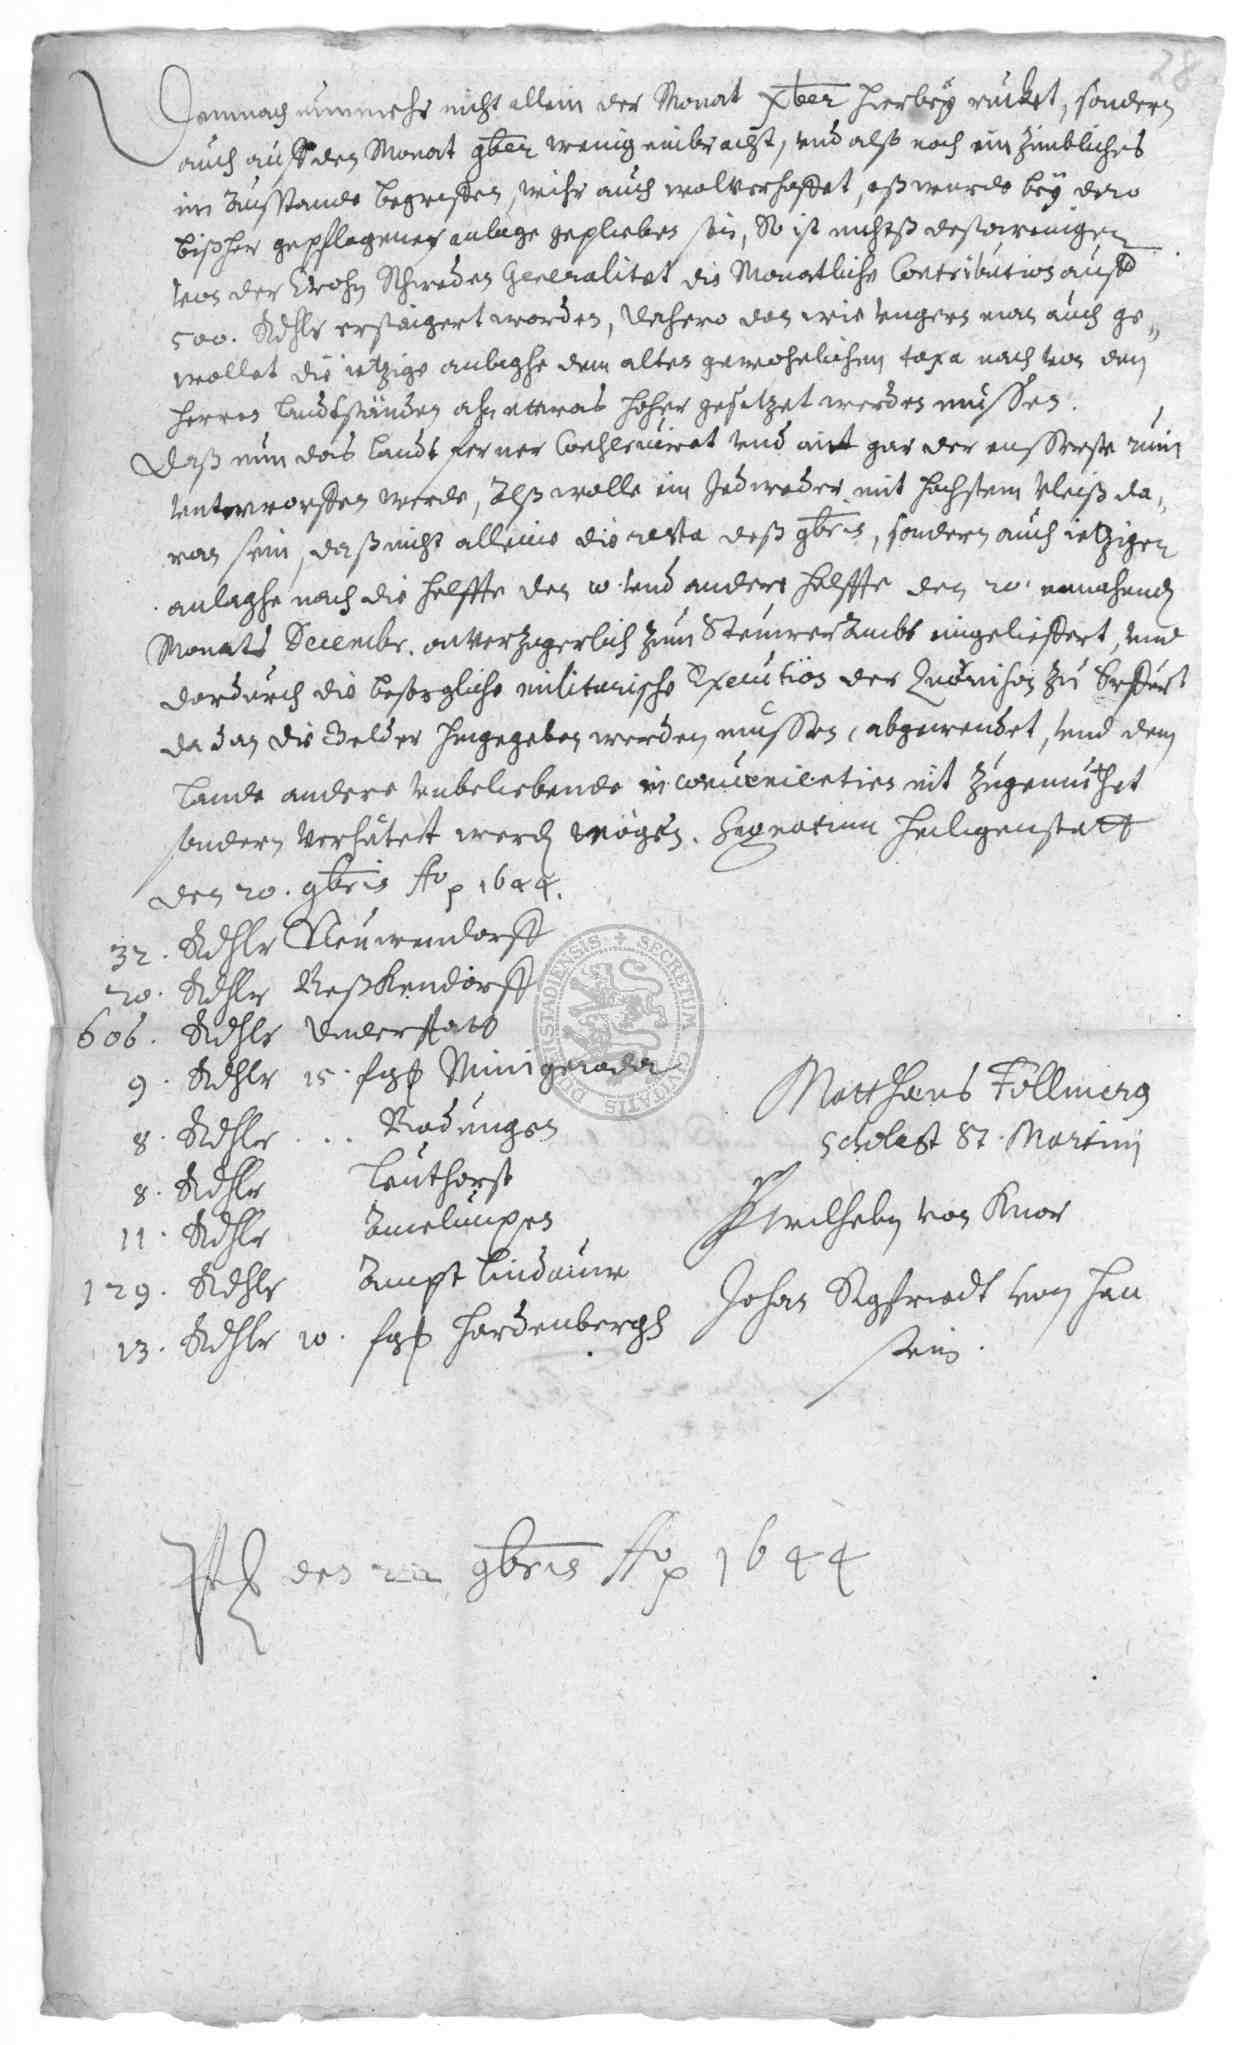 28
Demnach nunmehr nicht allein der Monat xber hierbey rucket, sondern
auch auff den Monat 9ber wenig einbracht, und alß noch ein zimbliches
im Außstande begriffen, wihr auch wol verhoffet, eß wurde bey dero
bißher gepflogener anlage geplieben sein, So ist nichtß destoweniger
von der Crohn Schweden Generalitet die Monatliche Contribution auff
500. Rthlr ersteigert worden, Dahero dan wie ungern man auch ge-
wollet die ietzige anlaghe dem alten gewohnlichen taxa nach von den
Herren Landtständen ahn etwas hoher gesetzet werden mussen.
Daß nun das Landt ferner Conserviret und nit gar der eussersten ruin
unterworffen werde, Alß wolle ein Jedweder mit hochstem vleiß da-
ran sein, daß nicht alleine die resta deß 9bris, sondern auch ietzigen
anlaghe nach die helffte den 10. und andere helffte den 20. annahendt
Monats Decembr. onverzugerlich zum Steurer Ambt eingelieffert, und
dardurch die besorgliche militarische Execution der Quarnison zu Erffurt
da dan die Gelder hingegeben werden mussen, abgewendet, und dem
Lande andere unbeliebende inconvenientien nit zugemuthet
sondern verhütet werden mögen. Signatum Heiligenstatt
den 20. 9bris Ao 1644.
32. Rthlr Neuwendorff
20. Rthlr Beßkendorff
606. Rthlr Duderstatt
9. Rthlr 15. fgl Minigeroda
8. Rthlr . . . Rodungen
8. Rthlr Leuthorst
11. Rthlr Amelunxen
129. Rthlr Ampt Lindauw
13. Rthlr 10. fgl Hardenbergh
Matthaeus Föllmerg
Scholast St. Martini
Wilhelm von Knor
Johan Sigfriedt von Han
stein.
den 22 9bris Ao 1644
SECRETUM CIVITATIS DUDERSTADIENSIS